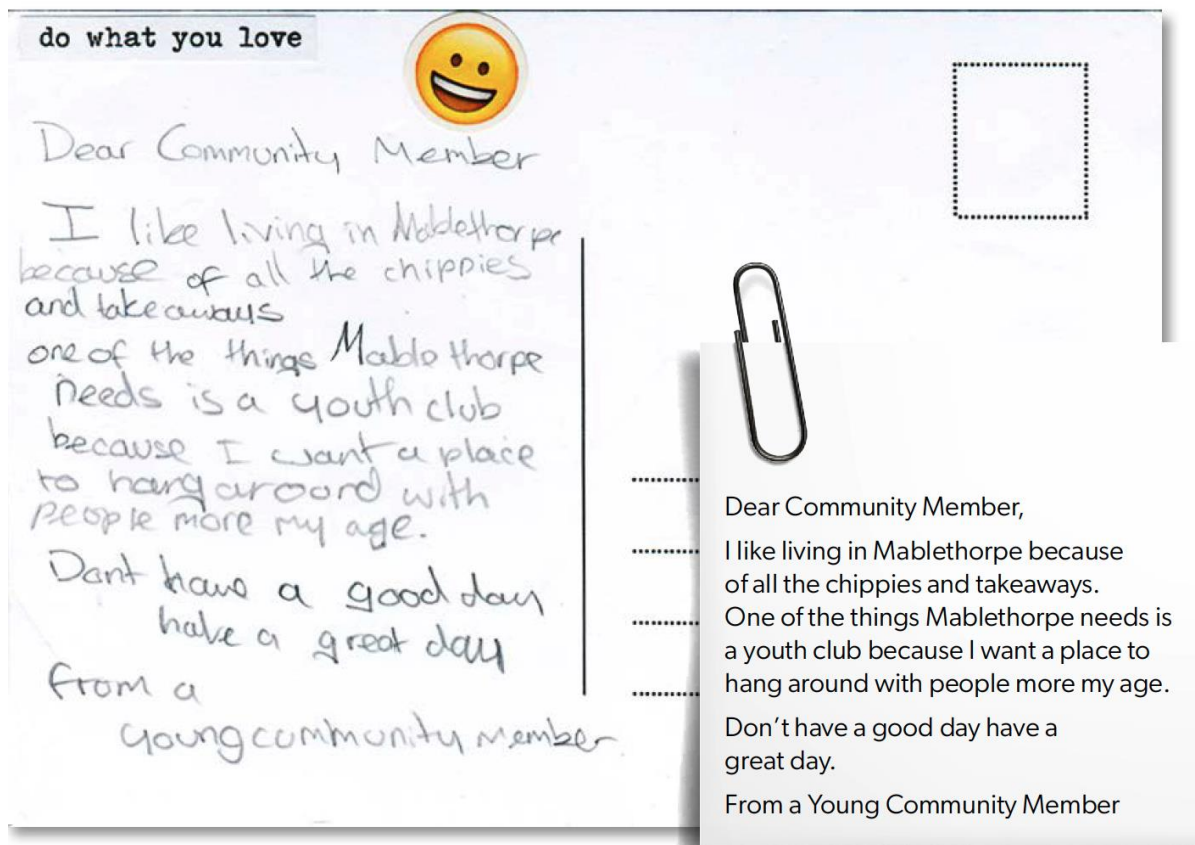 do what you love
Dear Community Member
I like living in Mablethorpe
because of all the chippies
and takeaways
one of the things Mablethorpe
needs is a youth club
because I want a place
to hang aroord with
people more my age.
Dant have a good day
have a great day
from a
young community member
Dear Community Member,
I like living in Mablethorpe because
of all the chippies and takeaways.
One of the things Mablethorpe needs is
a youth club because I want a place to
hang around with people more my age.
Don't have a good day have a
great day.
From a Young Community Member